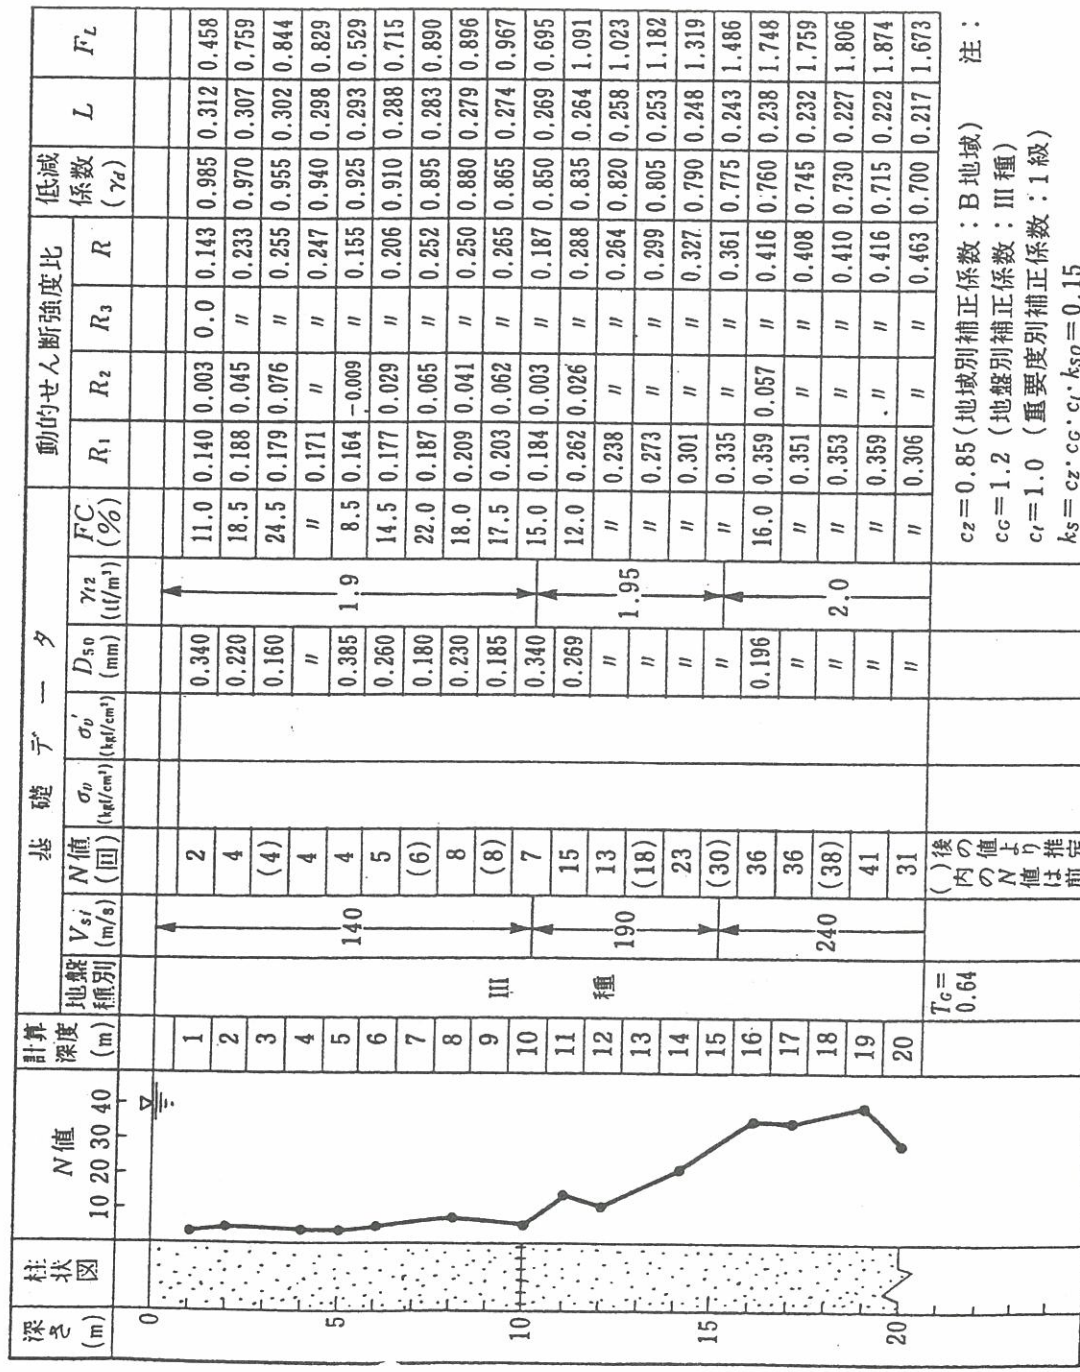 深さ (m) 柱状図 N値 計算深度 (m) 基礎データ 動的せん断強度比 低減係数 (γd) L FL
10 20 30 40 地盤種別 Vsi (m/s) N値 (回) σv (kgf/cm²) σv' (kgf/cm²) D50 (mm) γt2 (tf/m³) FC (%) R1 R2 R3 R
0
1 2 0.340 11.0 0.140 0.003 0.0 0.143 0.985 0.312 0.458
2 4 0.220 18.5 0.188 0.045 〃 0.233 0.970 0.307 0.759
3 (4) 0.160 24.5 0.179 0.076 〃 0.255 0.955 0.302 0.844
4 4 〃 〃 0.171 〃 〃 0.247 0.940 0.298 0.829
5 5 4 0.385 8.5 0.164 -0.009 〃 0.155 0.925 0.293 0.529
140 1.9
6 5 0.260 14.5 0.177 0.029 〃 0.206 0.910 0.288 0.715
7 (6) 0.180 22.0 0.187 0.065 〃 0.252 0.895 0.283 0.890
8 8 0.230 18.0 0.209 0.041 〃 0.250 0.880 0.279 0.896
9 (8) 0.185 17.5 0.203 0.062 〃 0.265 0.865 0.274 0.967
III種
10 10 7 0.340 15.0 0.184 0.003 〃 0.187 0.850 0.269 0.695
11 15 0.269 12.0 0.262 0.026 〃 0.288 0.835 0.264 1.091
12 13 〃 〃 0.238 〃 〃 0.264 0.820 0.258 1.023
190 1.95
13 (18) 〃 〃 0.273 〃 〃 0.299 0.805 0.253 1.182
14 23 〃 〃 0.301 〃 〃 0.327 0.790 0.248 1.319
15 15 (30) 〃 〃 0.335 〃 〃 0.361 0.775 0.243 1.486
16 36 0.196 16.0 0.359 0.057 〃 0.416 0.760 0.238 1.748
17 36 〃 〃 0.351 〃 〃 0.408 0.745 0.232 1.759
18 (38) 〃 〃 0.353 〃 〃 0.410 0.730 0.227 1.806
240 2.0
19 41 〃 〃 0.359 〃 〃 0.416 0.715 0.222 1.874
20 20 31 〃 〃 0.306 〃 〃 0.463 0.700 0.217 1.673
TG=
0.64
( )内のN値は前後の値より推定
cz=0.85 (地域別補正係数：B地域) 注：
cG=1.2 (地盤別補正係数：III種)
cI=1.0 (重要度別補正係数：1級)
ks=cz・cG・cI・ks0=0.15